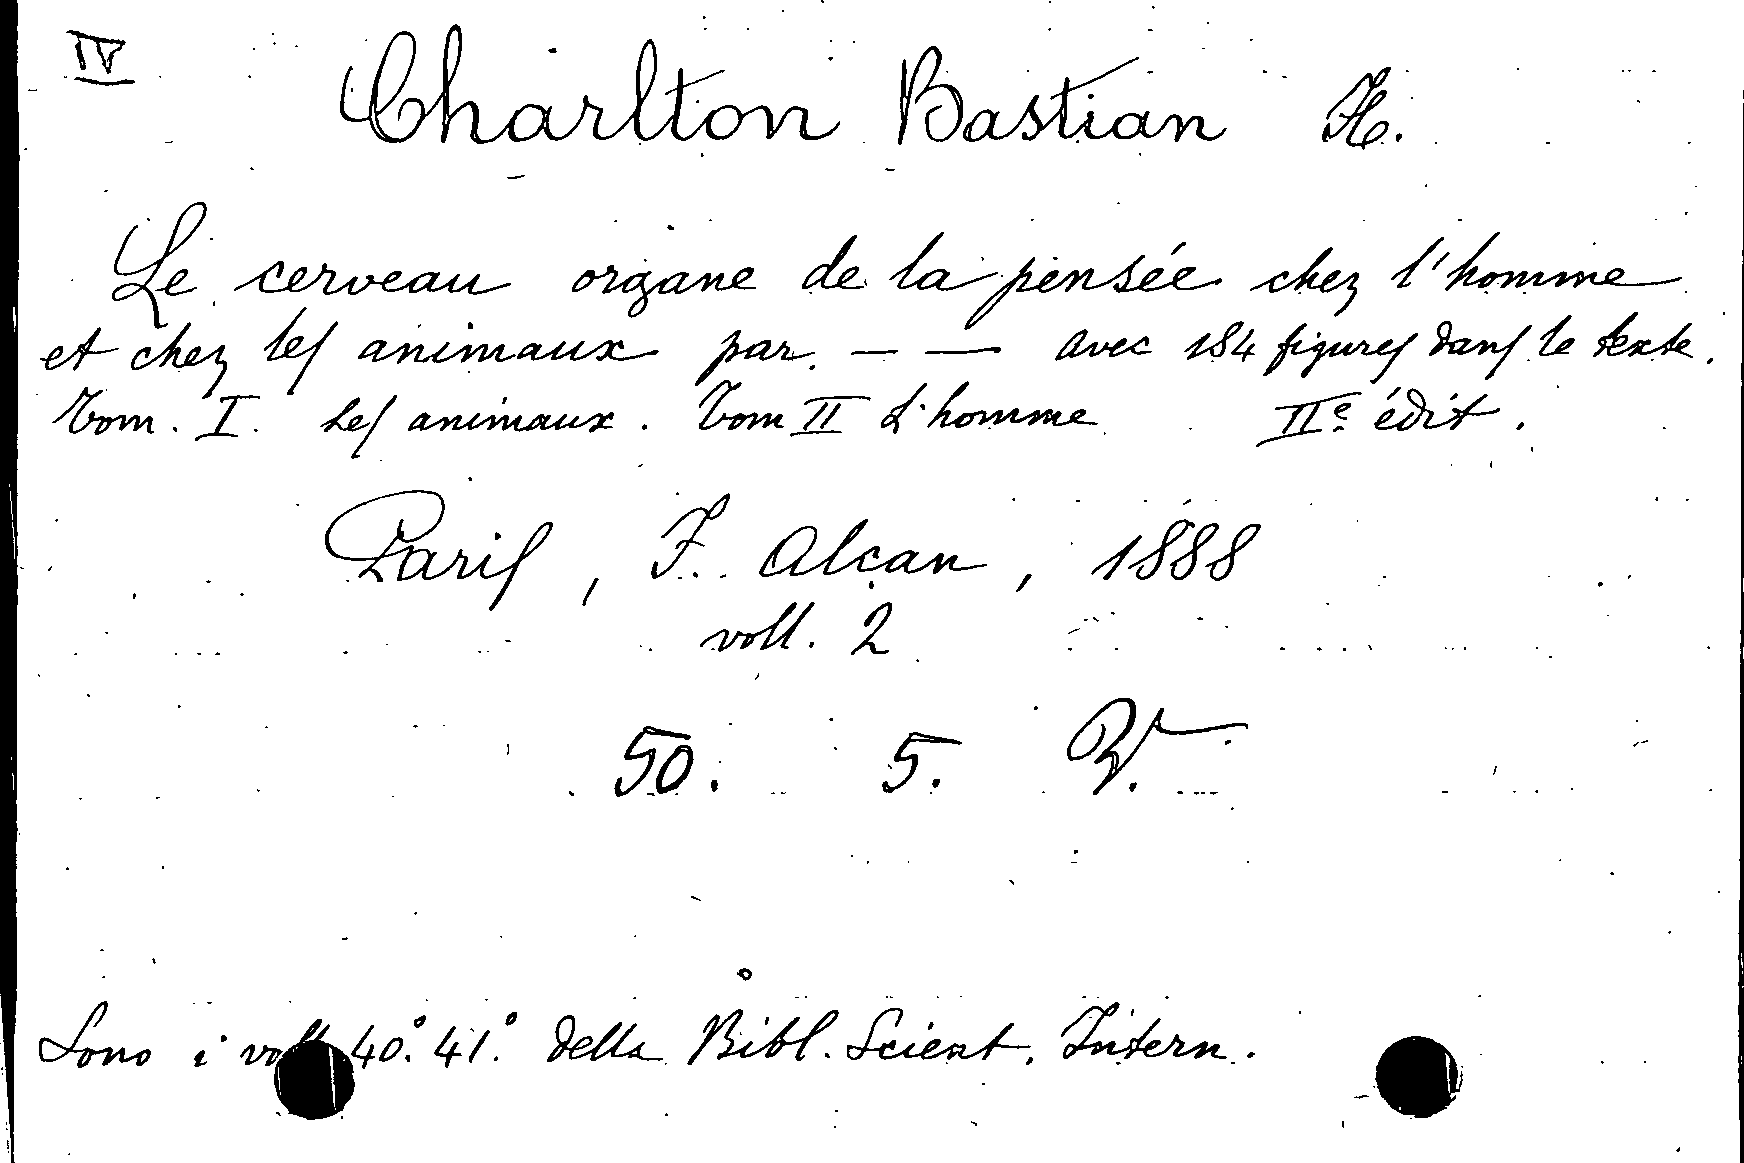 IV
Charlton Bastian H.
Le cerveau organe de la pensée chez l'homme
et chez les animaux par. — — avec 184 figures dans le texte.
Tom. I. Les animaux. Tom II L'homme IIe édit.
Paris, F. Alcan, 1888
voll. 2
50. 5. V.
Sono i voll. 40.° 41.° della Bibl. Scient. Intern.